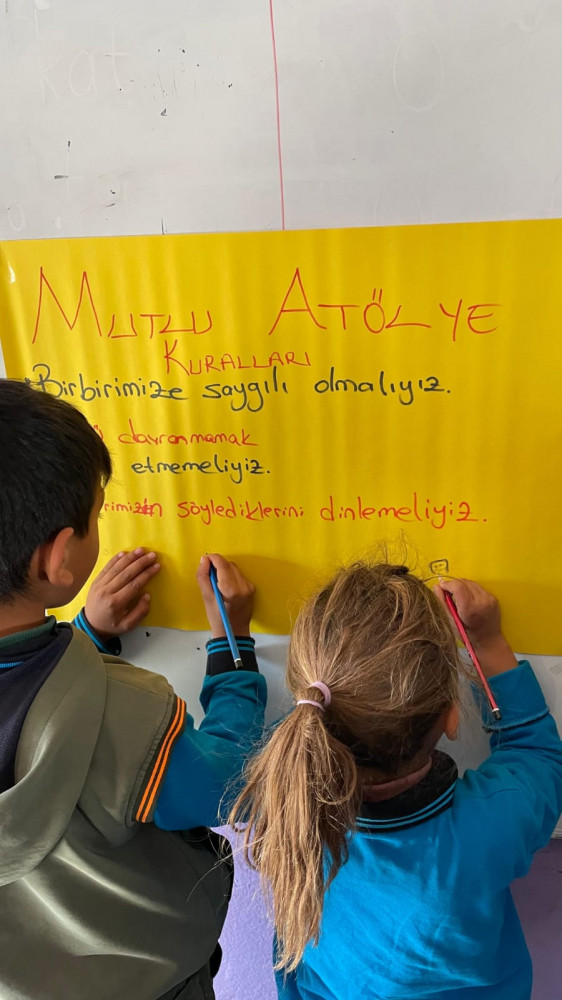 MUTLU ATÖLYE
KURALLARI
Birbirimize saygılı olmalıyız.
davranmamak
etmemeliyiz.
söylediklerini dinlemeliyiz.